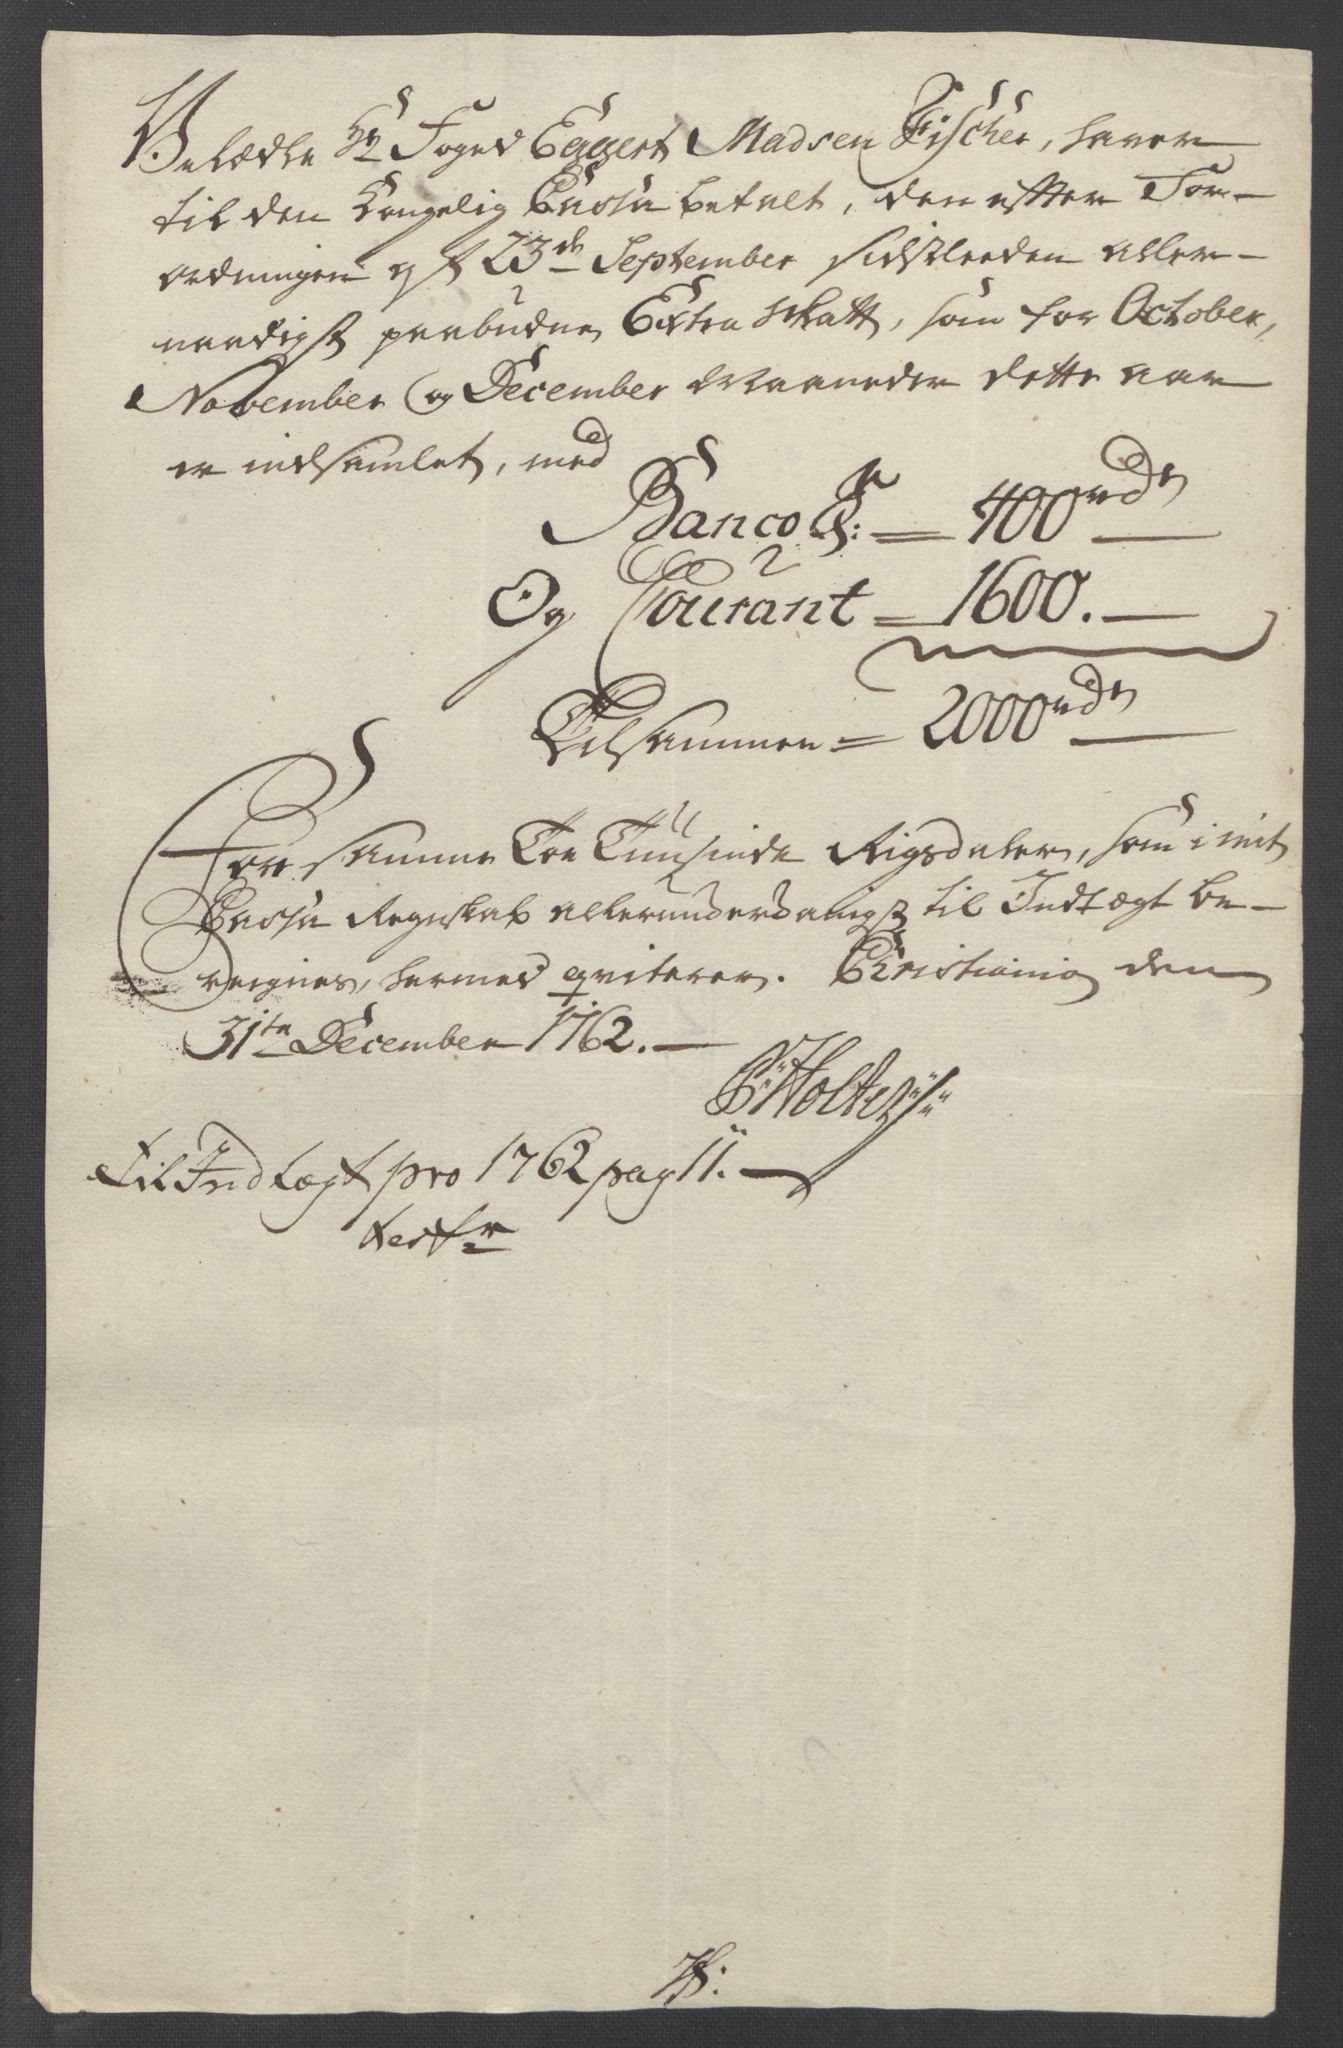 Velædle Hr Foged Eggert Madsen Fischer, haver
til den Kongelig Cassa betalt, den efter For-
ordningen af 23de September sidstleeden aller-
naadigst paabudne Extra Skatt, som for October,
November og December Maaneder dette aar
er indsamlet, med
Banco S: = 400 rdr
Og Courant = 1600.
Tilsammen = 2000 rdr
For samme Toe Tusinde Rigsdaler, som i mit
Cassa Regnskab allerunderdanigst til Indtægt be-
reignes, hermed qviterer. Christiania den
31te December 1762.
Holter
Til Indtægt pro 1762 pag 11.